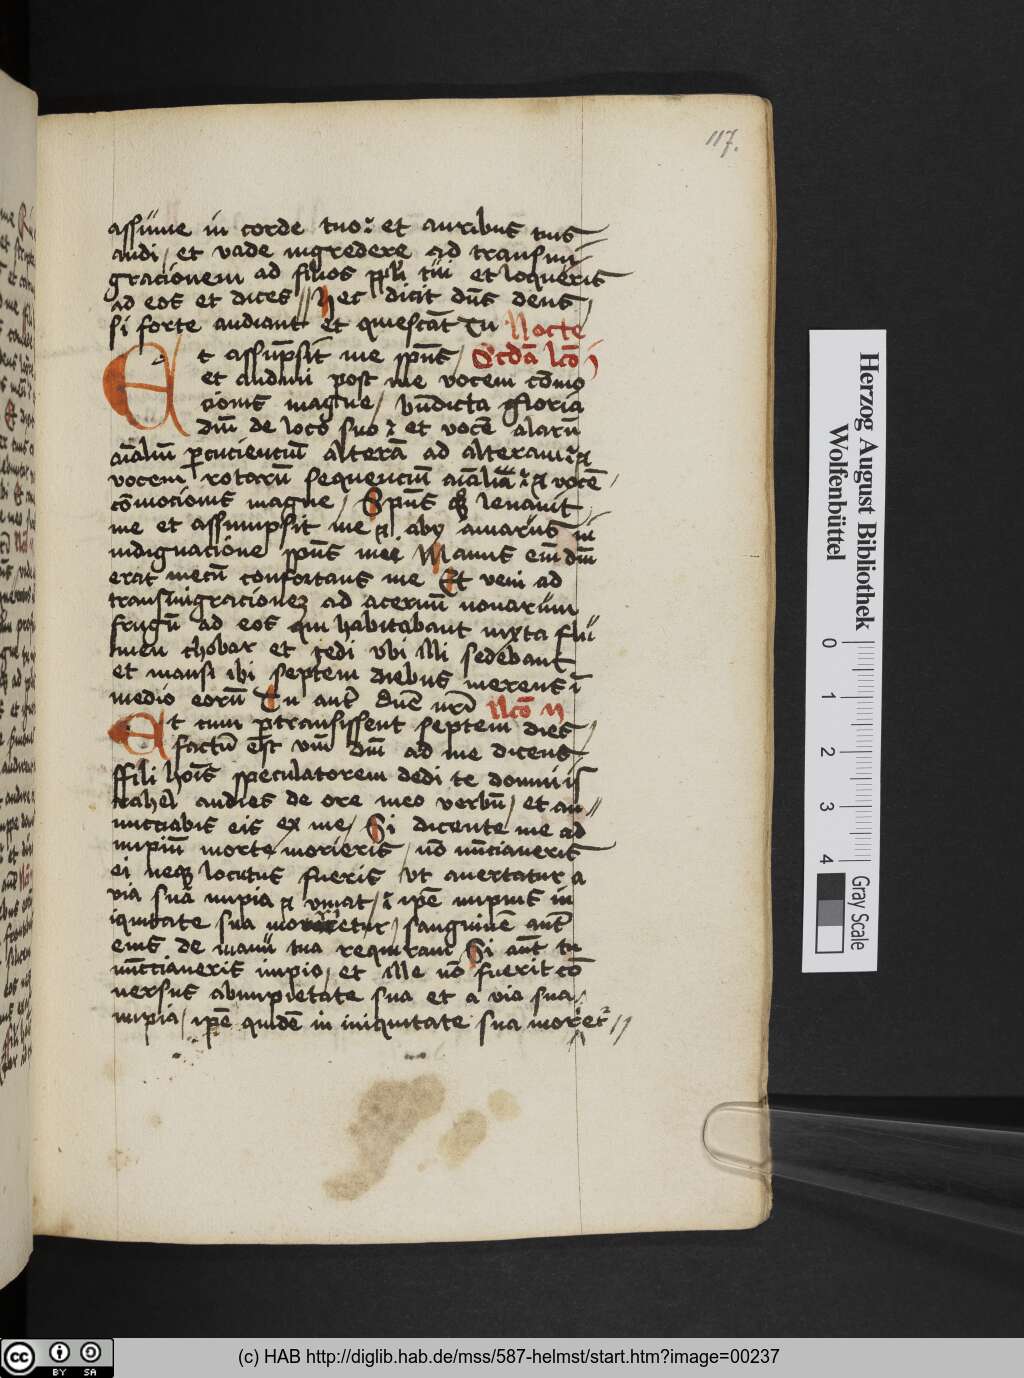 117.
assūme in corde tuo: et auribus tuis
audi, et vade ingredere ad transmi
gracionem ad filios ppli tui et loqueris
ad eos et dices // hec dicit dn̄s deus
si forte audiant et quiescāt Tu Nocte
Et assūpsit me spūs, Scdā lcō i
et audiui post me vocem cōmo
cionis magne, bn̄dicta gloria
dn̄i de loco suo: et vocē alarū
aīaliū percuciencīū alterā ad alteram: et
vocem rotarū sequenciū aīalia: et vocē
cōmocionis magne, Spūs qq leuauit
me et assumpsit me et abij amarus in
indignacione spūs mei Manus eīm dn̄i
erat mecū confortans me Et veni ad
transmigracionez ad aceruū nouarum
frugū ad eos qui habitabant iuxta flu
men chobar et sedi vbi illi sedebant
et mansi ibi septem diebus merens ī
medio eorū Tu aut̄ dn̄e nr̄i ii lcō ii
Et cum pertransissent septem dies,
factū est vm̄ dn̄i ad me dicens
ffili hoīs speculatorem dedi te domui is
rahel audies de ore meo verbū, et an//
nuncciabis eis ex me, Si dicente me ad
impiū morte morieris, nō nūcciaueris
ei neqz locutus fueris vt auertatur a
via suā impia et viuat,: ipē impius in
iquitate sua morietur, sanguinē aut̄
eius de manu tua requiram Si aut̄ tu
nūcciaueris impio, et ille nō fuerit cō
uersus abimpietate sua et a via sua
impia, ipē quidē in iniquitate sua moriet̄ //
Herzog August Bibliothek
Wolfenbüttel
0 1 2 3 4
Gray Scale
cc BY SA
(c) HAB http://diglib.hab.de/mss/587-helmst/start.htm?image=00237